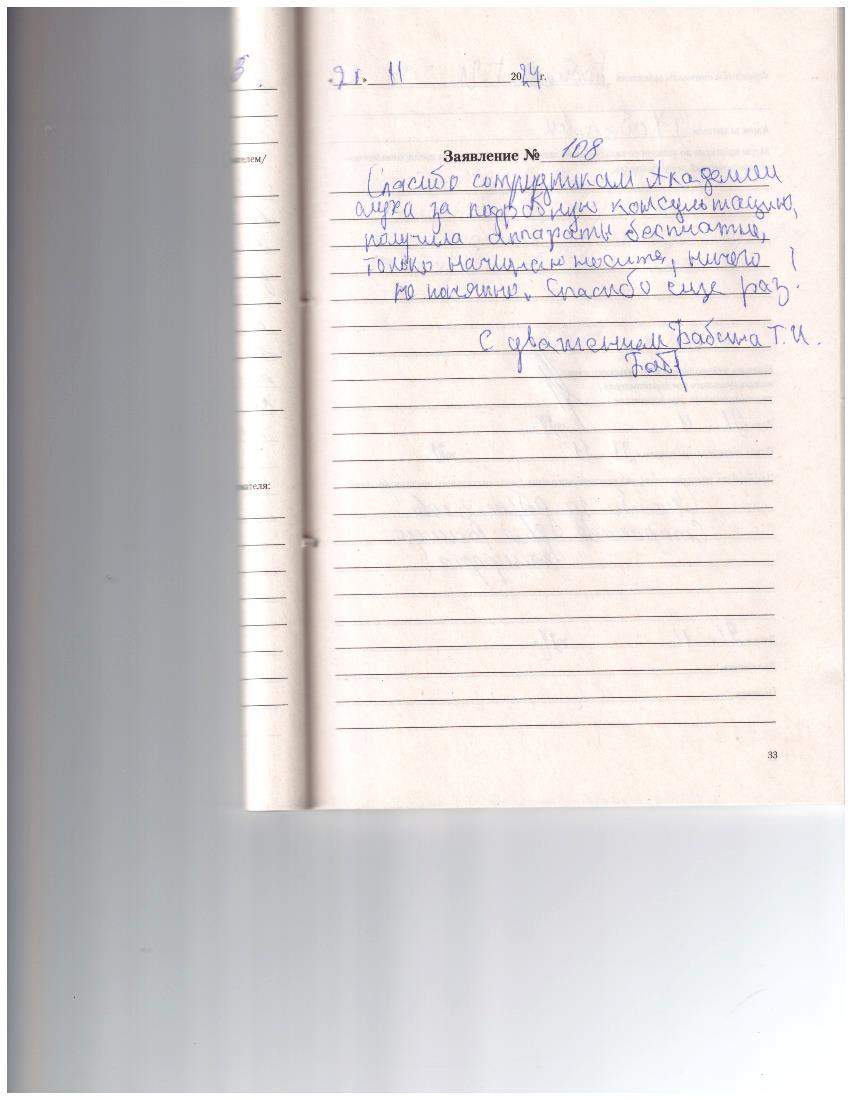 21. 11 2024 г.
Заявление № 108
Спасибо сотрудникам Академии
слуха за подробную консультацию,
получила аппараты бесплатно,
только начинаю носить, ничего
не понятно. Спасибо еще раз.
С уважением Бабина Т.И.
ателем/
вателя:
33